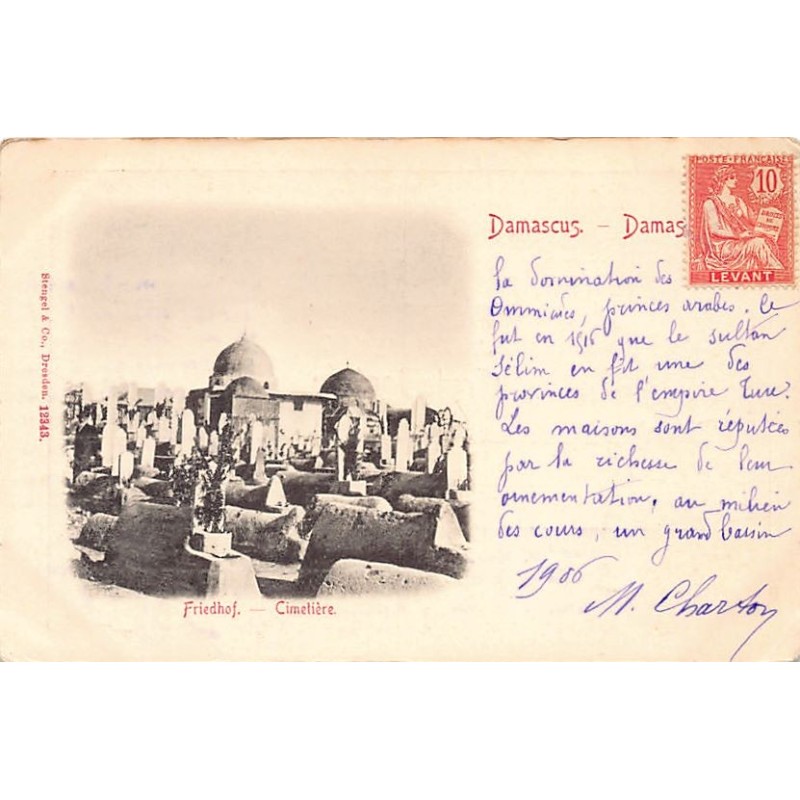 POSTE·FRANÇAISE
10
DROITS
DE
LEVANT
Damascus. — Damas
la domination des
Ommiades, princes arabes. Ce
fut en 1516 que le sultan
Sélim en fit une des
provinces de l'empire Turc.
Les maisons sont réputées
par la richesse de leur
ornementation, au milieu
des cours, un grand bassin
1906
M. Charton
Stengel & Co., Dresden. 12343.
Friedhof. — Cimetière.